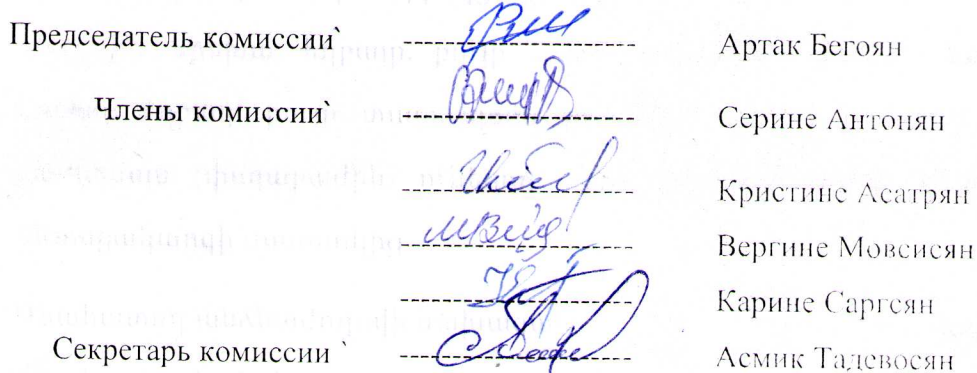 Председатель комиссии՝ Артак Бегоян
Члены комиссии՝ Серине Антонян
Кристине Асатрян
Вергине Мовсисян
Карине Саргсян
Секретарь комиссии ՝ Асмик Тадевосян